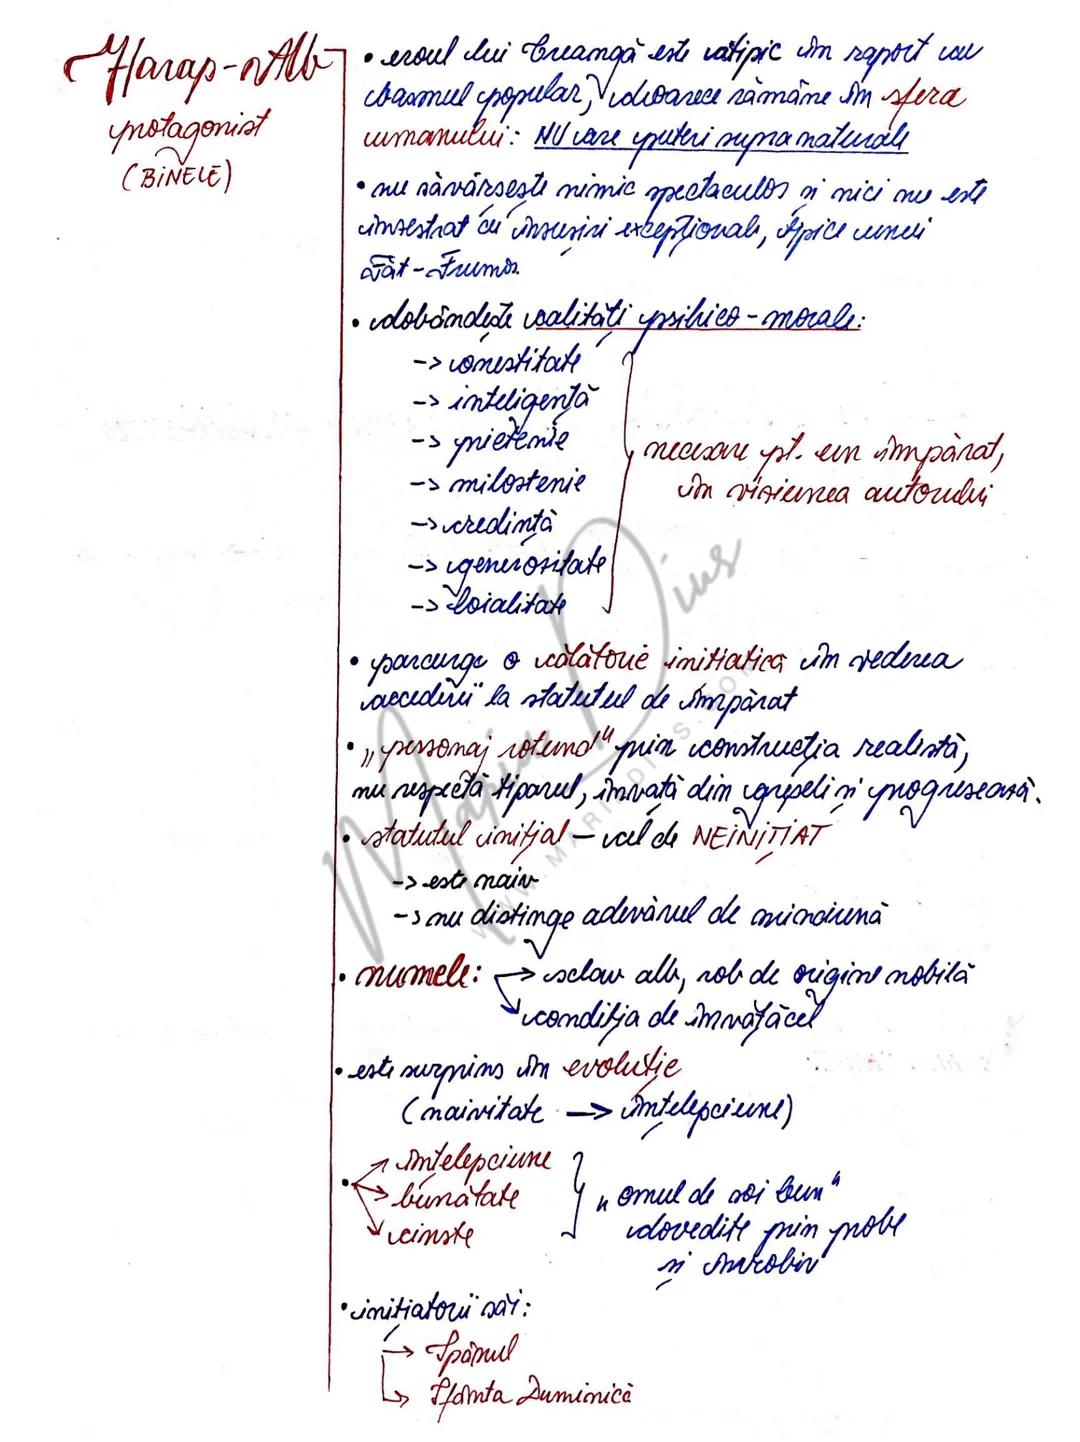 Harap-Alb
protagonist
(BINELE)
• eroul lui Creangă este atipic în raport cu
basmul popular, deoarece rămâne în sfera
umanului: NU are puteri supranaturale
• nu săvârșește nimic spectaculos și nici nu este
înzestrat cu însușiri excepționale, tipice unui
Făt-Frumos.
• dobândește calități psihico-morale:
-> onestitate
-> inteligență
-> prietenie
-> milostenie
-> credință
-> generozitate
-> loialitate
necesare pt. un împărat,
în viziunea autorului
• parcurge o călătorie inițiatică în vederea
accederii la statutul de împărat
• „personaj rotund" prin construcția realistă,
nu respectă tiparul, învață din greșeli și progresează.
• statutul inițial – cel de NEINIȚIAT
-> este naiv
-> nu distinge adevărul de minciună
• numele: -> sclav alb, rob de origine nobilă
condiția de învățăcel
• este surprins în evoluție
(naivitate -> înțelepciune)
• înțelepciune
-> bunătate
cinste
„omul de soi bun"
dovedite prin probe
și în robie
• inițiatorii săi:
-> Spânul
-> Sfânta Duminică
Maria Dius